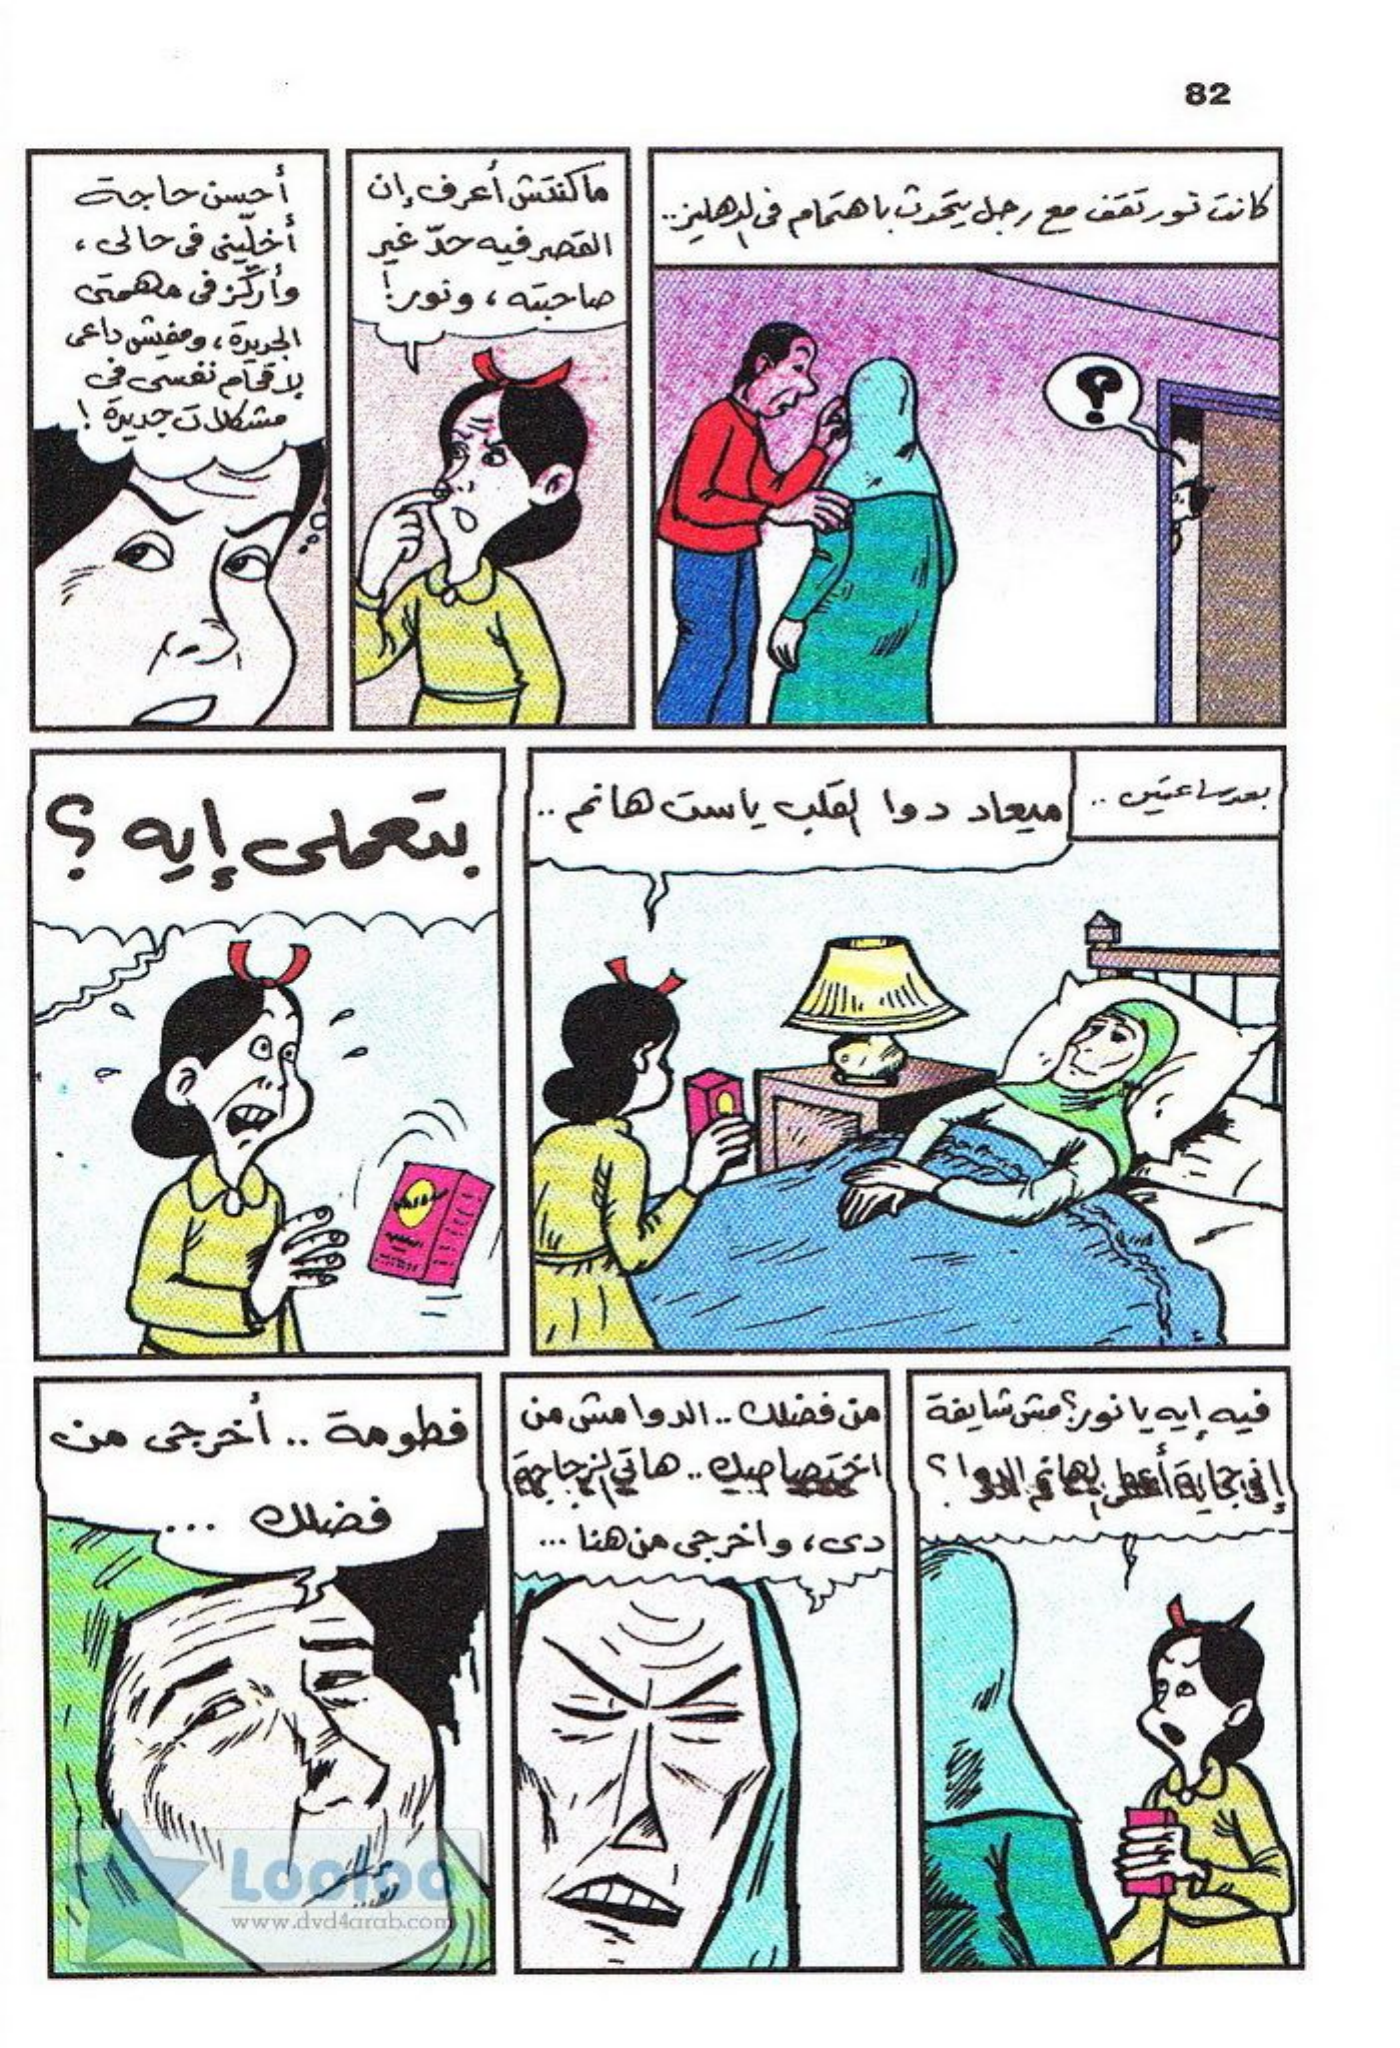 82
كانت نور تقف مع رجل يتحدث باهتمام فى الدهليز..
؟
ماكنتش أعرف إن
القصر فيه حدّ غير
صاحبته، ونور!
أحسن حاجة
أخلّينى فى حالى،
وأركّز فى مهمتى
الجديدة، ومفيش داعى
لإقحام نفسى فى
مشكلات جديدة!
بعد ساعتين..
ميعاد دوا القلب ياست هانم..
بتعملى إيه؟
فيه إيه يا نور؟ مش شايفة
إنى جاية أعطى الهانم الدوا؟
من فضلك.. الدوا مش من
اختصاصك.. هاتى الزجاجة
دى، واخرجى من هنا...
فطومة.. أخرجى من
فضلك...
Looloo
www.dvd4arab.com